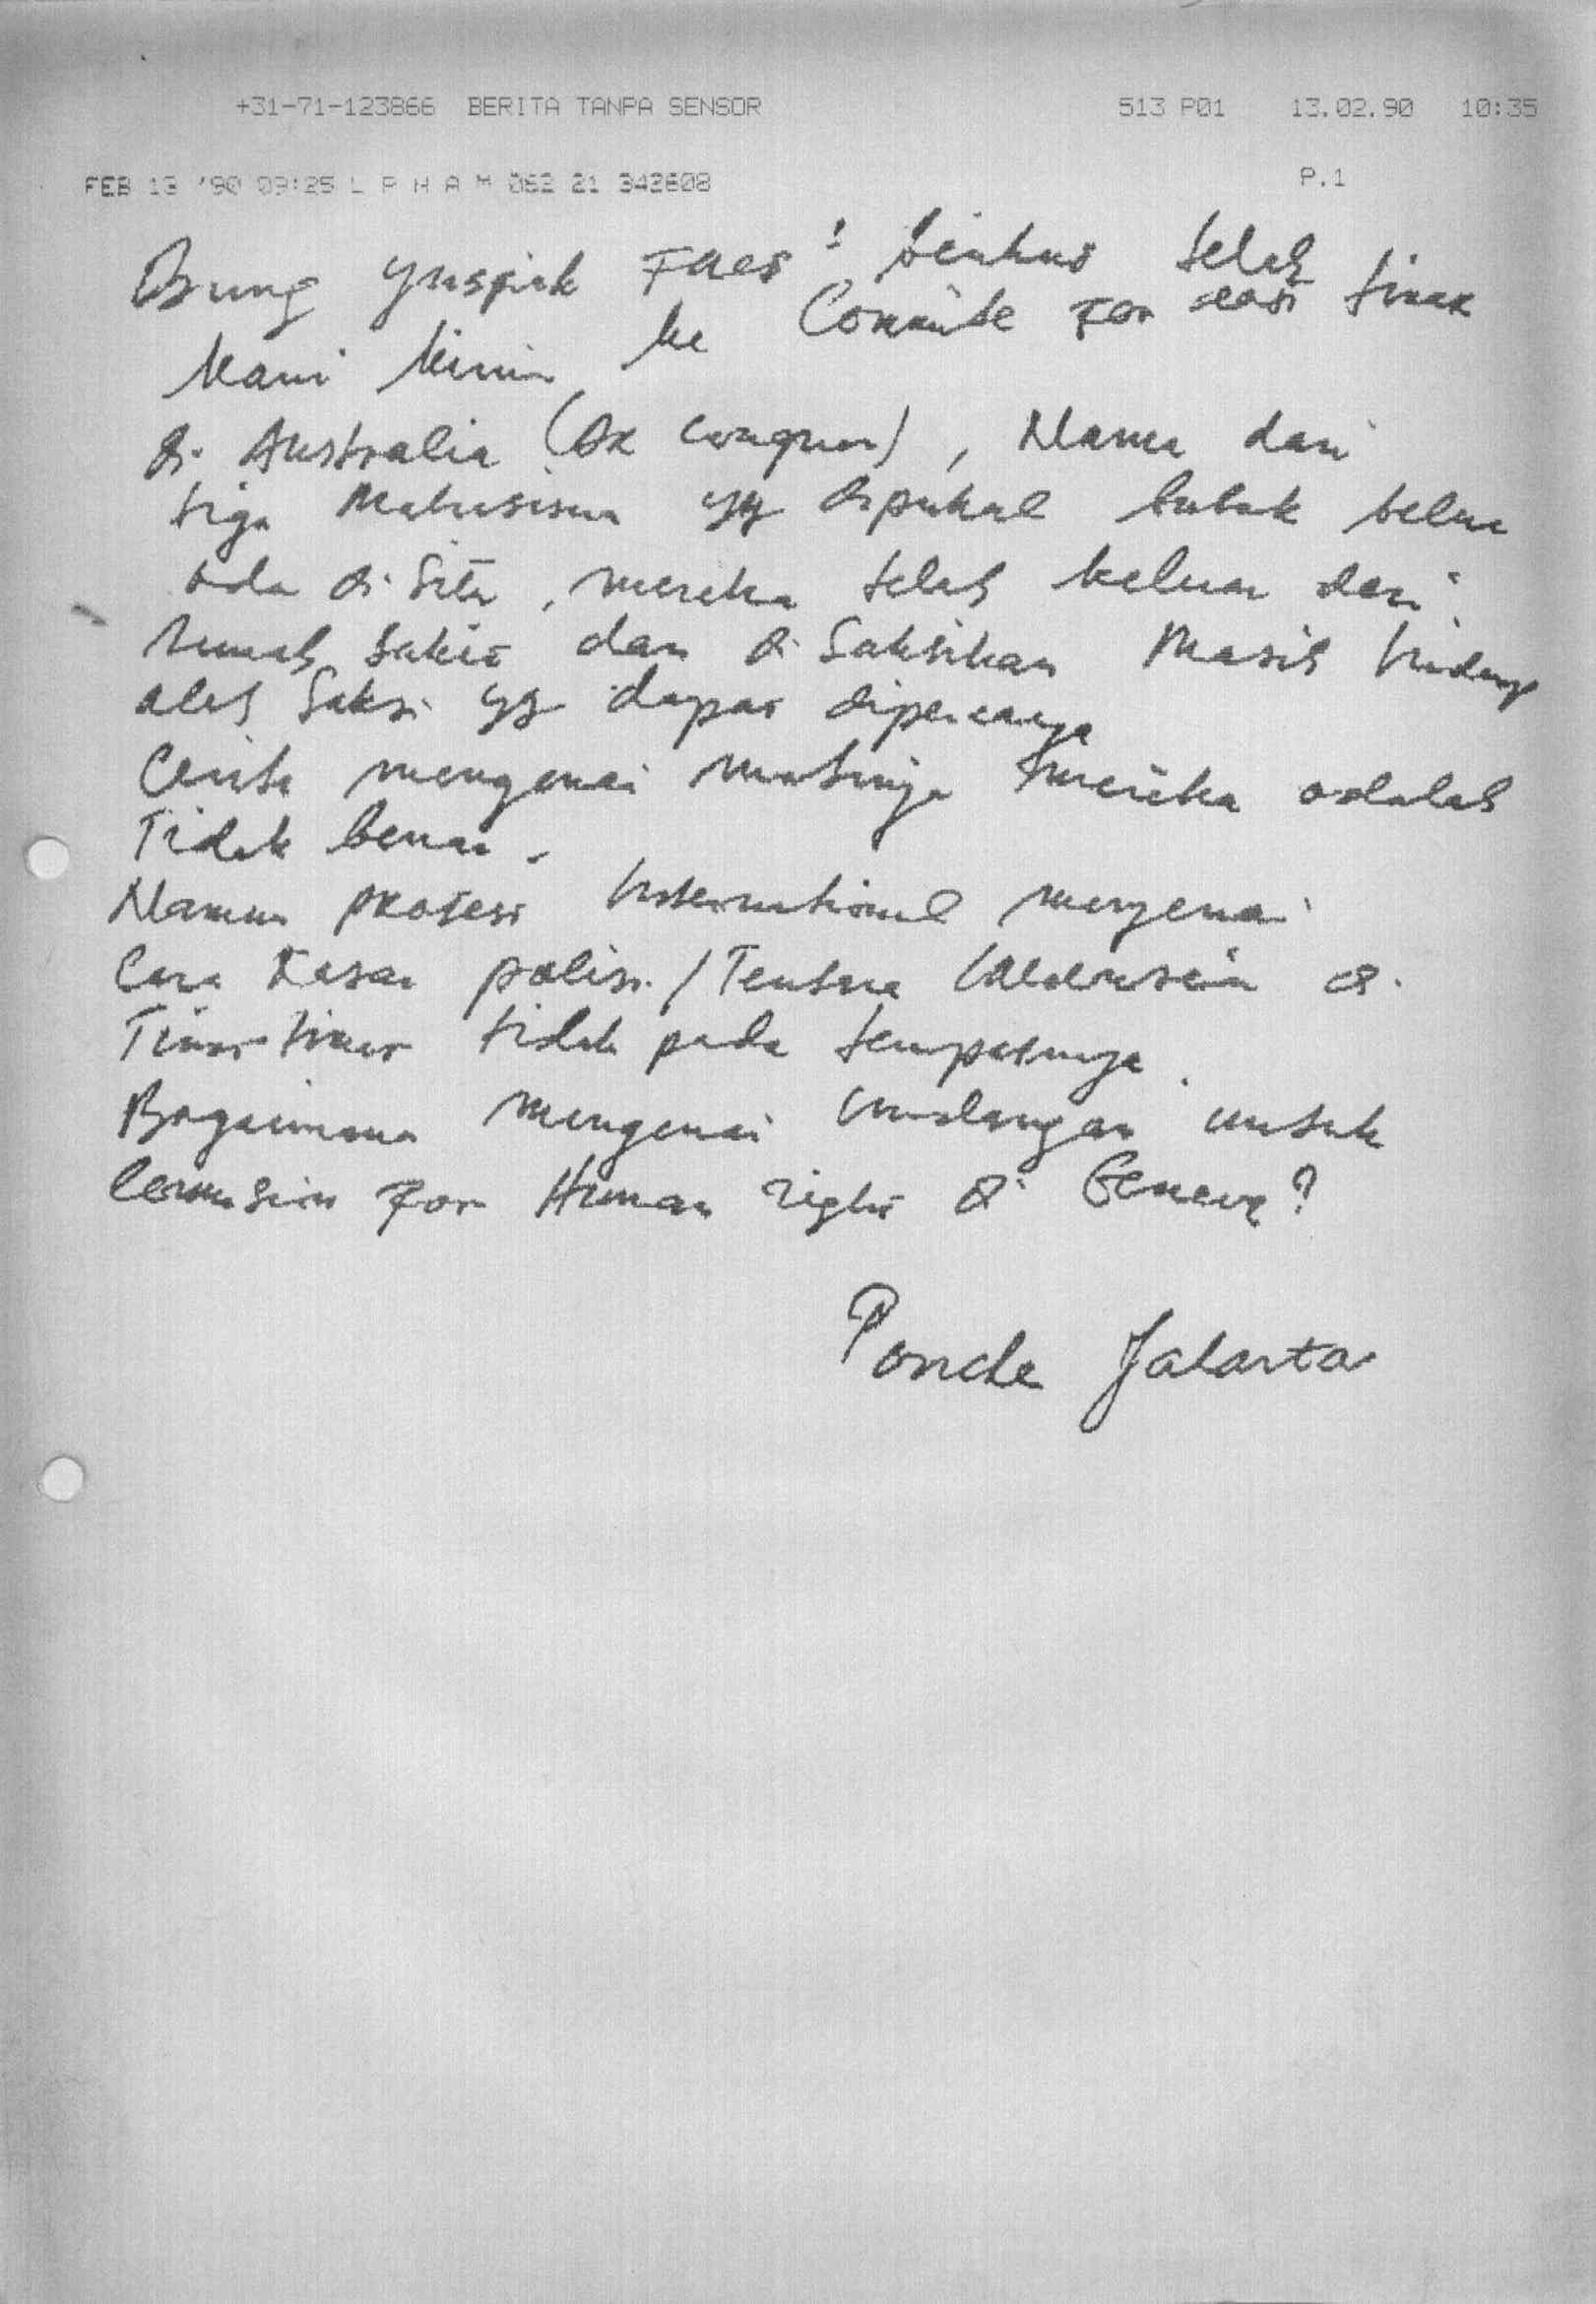 +31-71-123866 BERITA TANPA SENSOR 513 P01 13.02.90 10:35
FEB 13 '90 09:25 L P H A M 062 21 342608 P.1
Bung Yuspiek telah
kami kirim ke Commite For east timor
di Australia, Nama dari
tiga Mahasiswa yg dipukul babak belur
ada di situ, mereka telah keluar dari
rumah sakit dan di Saksikan Masih hidup
oleh Saksi yg dapat dipercaya
Cerita mengenai matinya mereka adalah
Tidak benar.
Namun protest International mengenai
Cara Kasar polisi/Tentara Indonesia di
Timor timur tidak pada tempatnya.
Bagaimana mengenai Undangan untuk
Commision for Human right di Geneva?
Ponche Jakarta